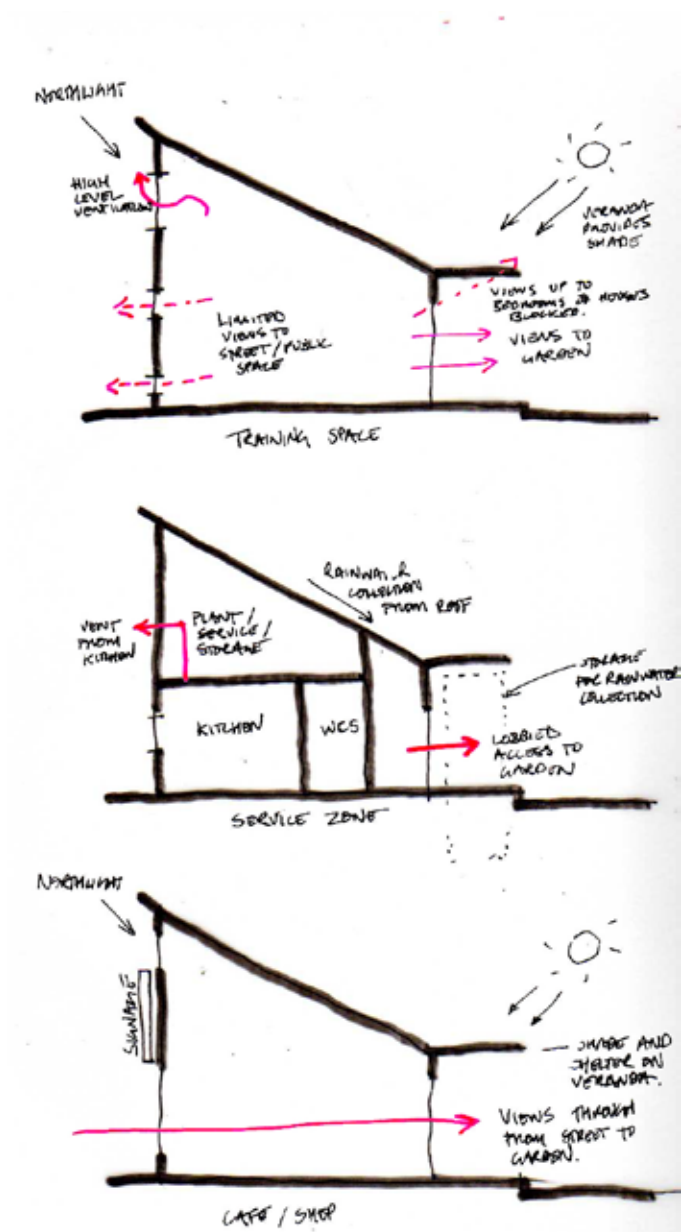 NORTHLIGHT
HIGH
LEVEL
VENTILATION
VERANDA
PROVIDES
SHADE
VIEWS UP TO
BEDROOMS OF HOUSES
BLOCKED.
LIMITED
VIEWS TO
STREET/PUBLIC
SPACE
VIEWS TO
GARDEN
TRAINING SPACE
RAINWATER
COLLECTION
FROM ROOF
VENT
FROM
KITCHEN
PLANT/
SERVICE/
STORAGE
STORAGE
FOR RAINWATER
COLLECTION
KITCHEN
WCS
LOBBIED
ACCESS TO
GARDEN
SERVICE ZONE
NORTHLIGHT
SIGNAGE
SHADE AND
SHELTER ON
VERANDA.
VIEWS THROUGH
FROM STREET TO
GARDEN.
CAFE / SHOP